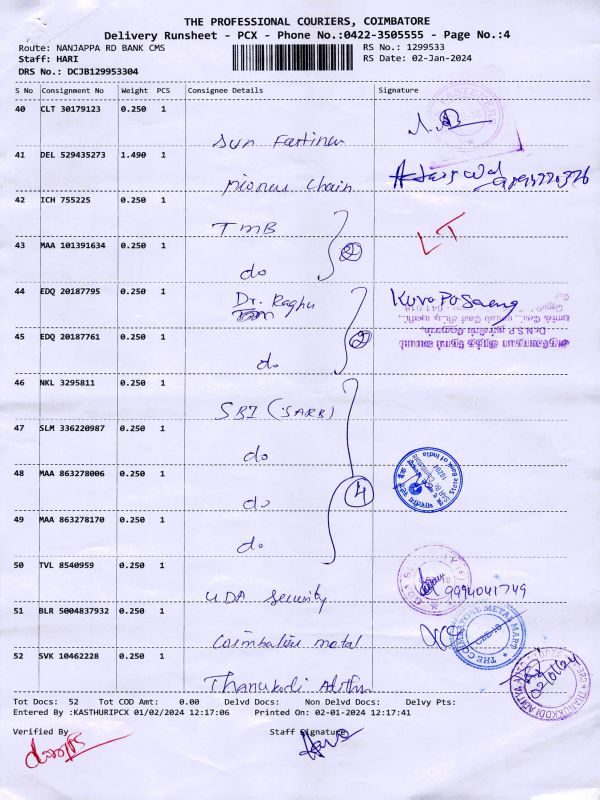 THE PROFESSIONAL COURIERS, COIMBATORE
Delivery Runsheet - PCX - Phone No.:0422-3505555 - Page No.:4
Route: NANJAPPA RD BANK CMS RS No.: 1299533
Staff: HARI RS Date: 02-Jan-2024
DRS No.: DCJB129953304
S No Consignment No Weight PCS Consignee Details Signature
40 CLT 30179123 0.250 1
Sun
41 DEL 529435273 1.490 1
Pioneer Chain
42 ICH 755225 0.250 1
TMB
LT
43 MAA 101391634 0.250 1
do 2
44 EDQ 20187795 0.250 1
Dr. Raghu
45 EDQ 20187761 0.250 1
do 2
46 NKL 3295811 0.250 1
SBI (SARB)
47 SLM 336220987 0.250 1
do
48 MAA 863278006 0.250 1
do 4
State Bank of India
49 MAA 863278170 0.250 1
do
50 TVL 8540959 0.250 1
UDA Security 9994041749
51 BLR 5004837932 0.250 1
Coimbatore metal
THE COIMBATORE METAL MART
52 SVK 10462228 0.250 1
Thanukodi Adithya
Tot Docs: 52 Tot COD Amt: 0.00 Delvd Docs: Non Delvd Docs: Delvy Pts:
Entered By :KASTHURIPCX 01/02/2024 12:17:06 Printed On: 02-01-2024 12:17:41
Verified By Staff Signature